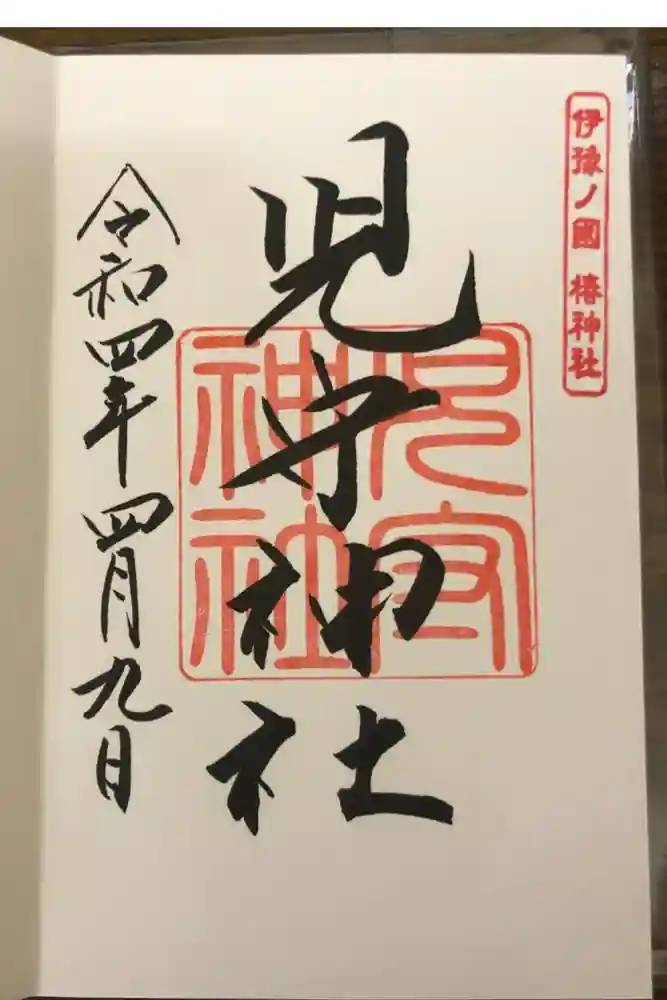 伊豫ノ國 椿神社
児守神社
児守
神社
令和四年四月九日